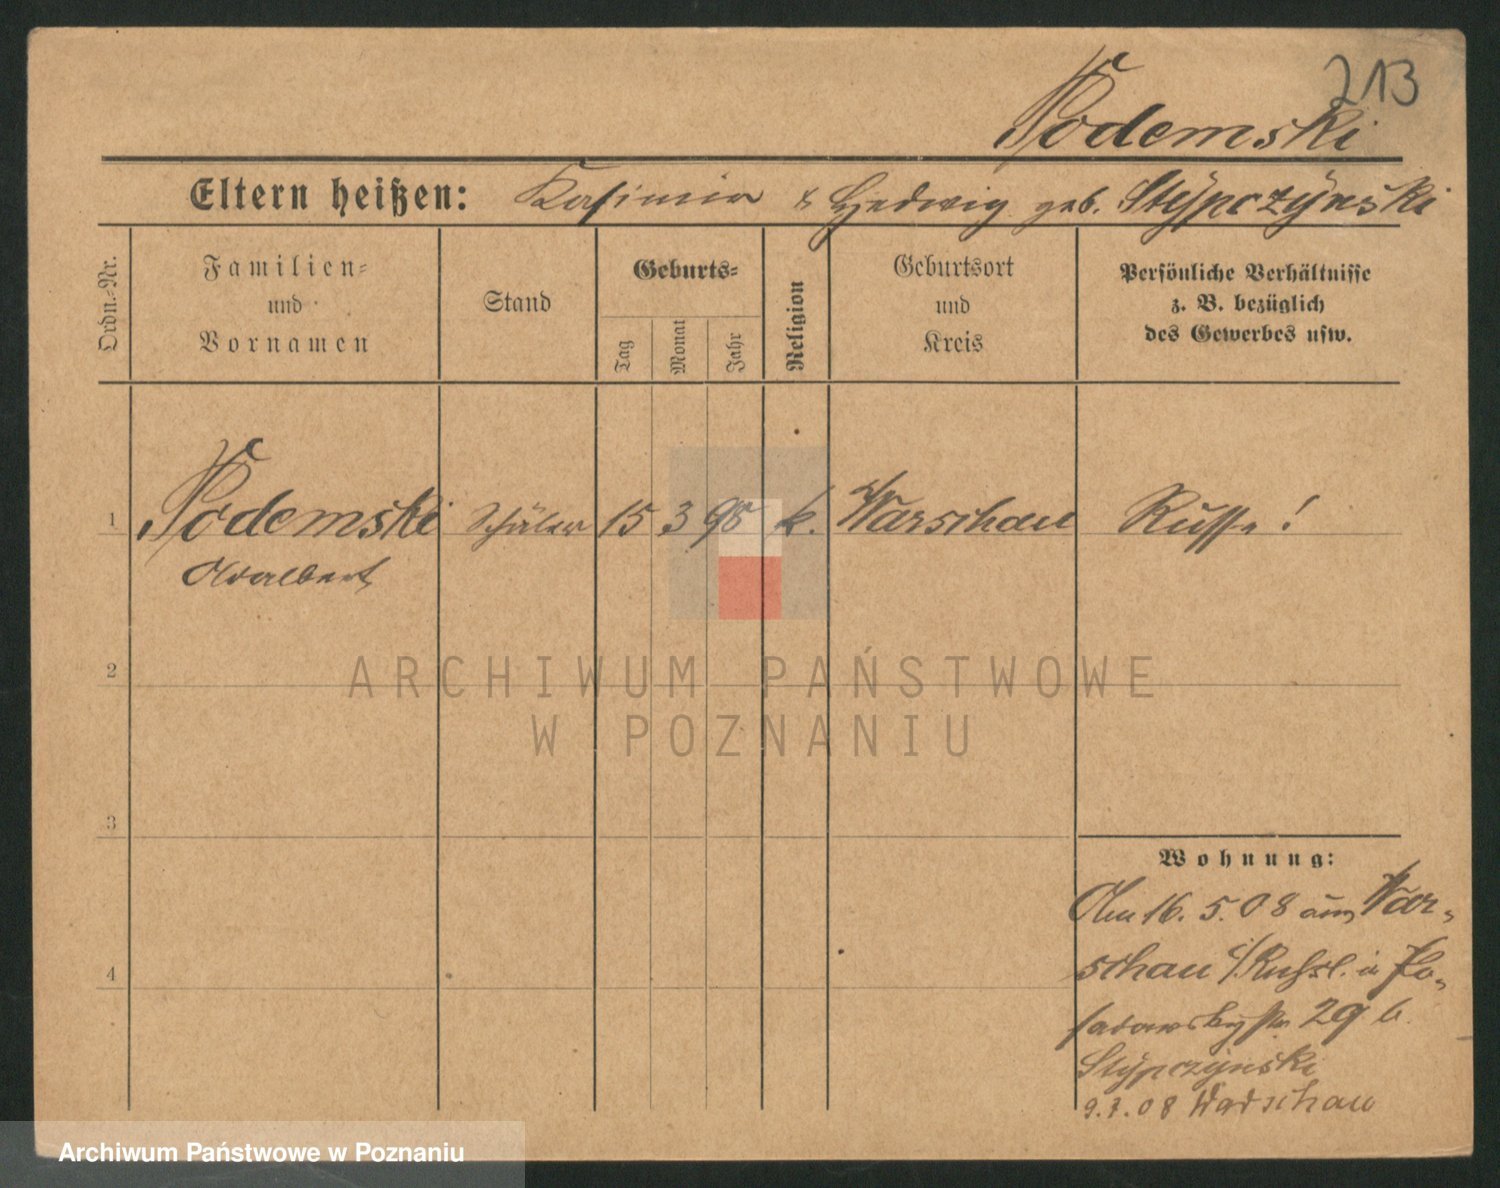 213
Podemski
Eltern heißen: Kasimir & Hedwig geb. Stÿpczÿnski
Ordn.-Nr.
Familien-
und
Vornamen
Stand
Geburts-
Tag
Monat
Jahr
Religion
Geburtsort
und
Kreis
Persönliche Verhältnisse
z. B. bezüglich
des Gewerbes usw.
1 Podemski Schüler 15 3 98 k. Warschau Russe!
Adalbert
2
3
4
Wohnung:
Am 16. 5. 08 aus War-
schau i/Russl. in Po-
sadowskystr 29 b.
Stÿpczÿnski
9.7.08 Warschau
ARCHIWUM PAŃSTWOWE
W POZNANIU
Archiwum Państwowe w Poznaniu